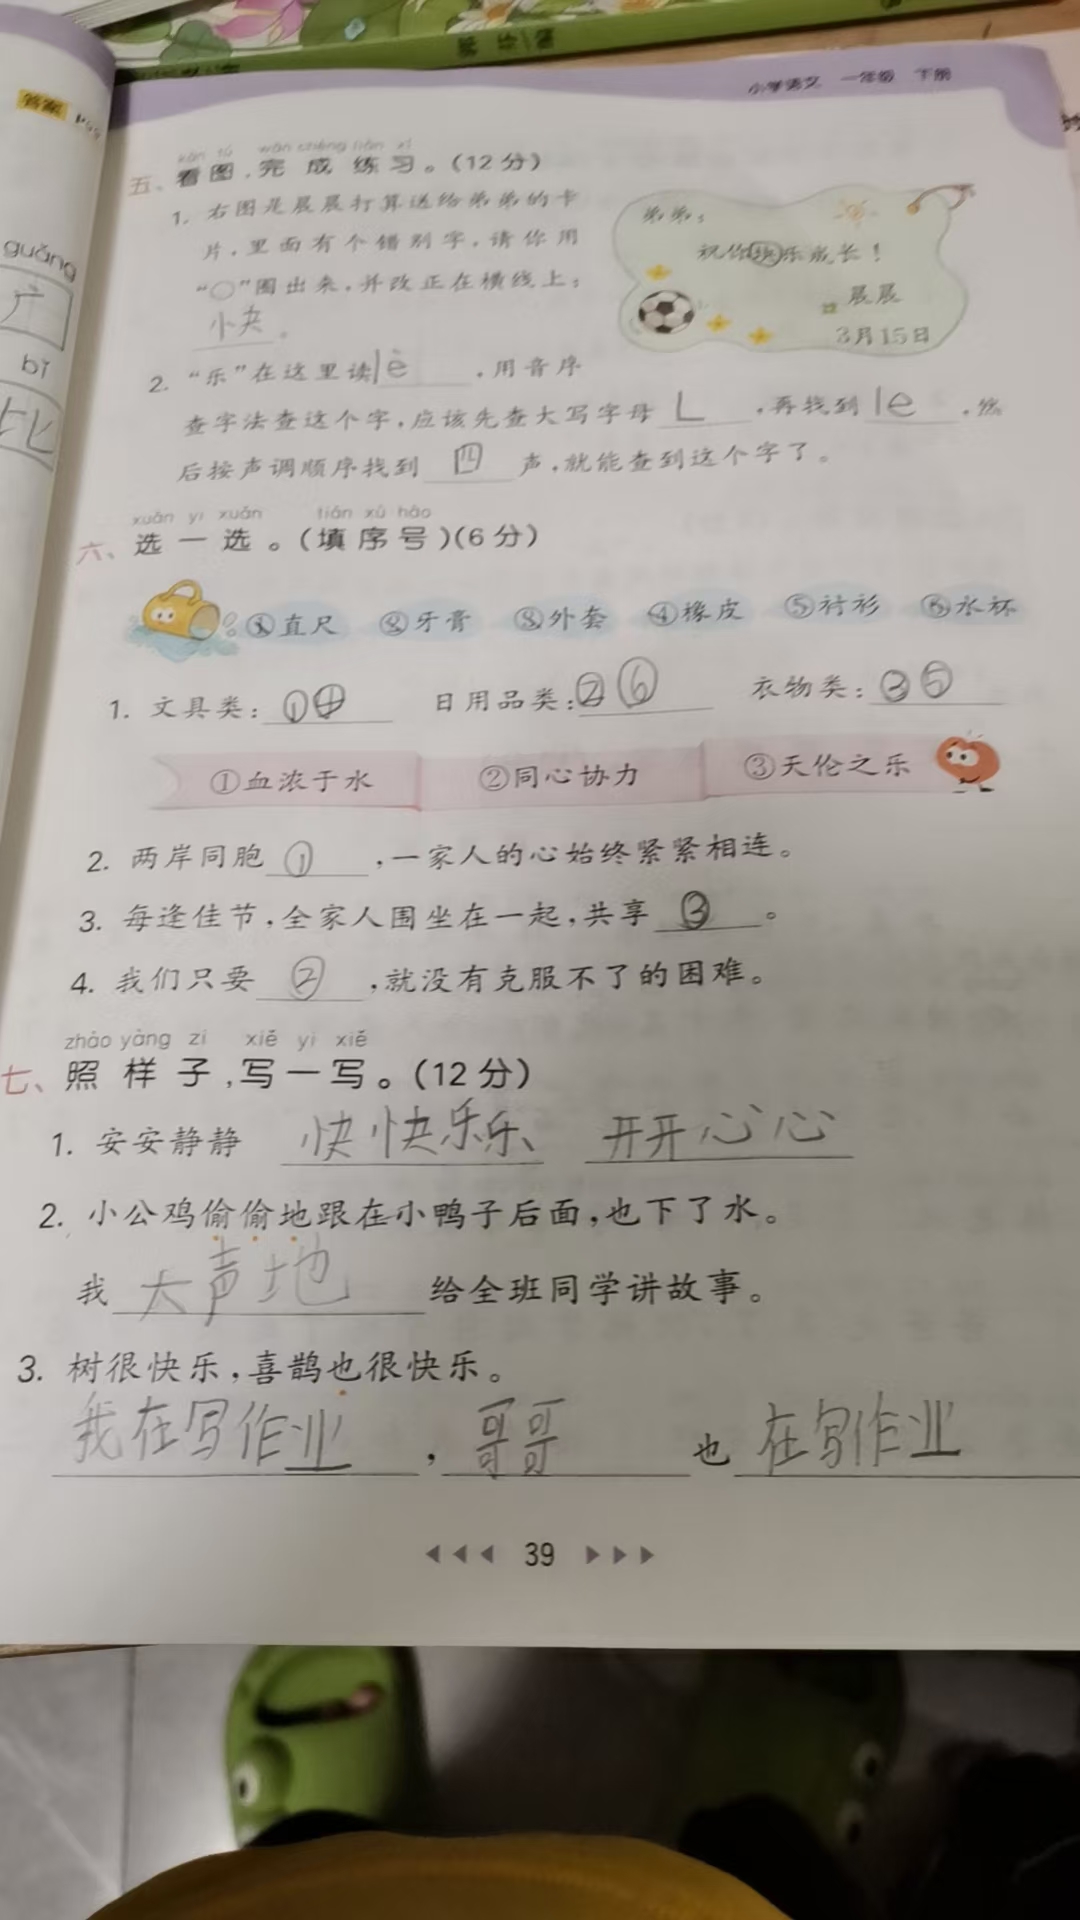 小学语文 一年级 下册
答案 P99
guǎng
广
bǐ
比
kàn tú wán chéng liàn xí
五、看图,完成练习。(12分)
1. 右图是晨晨打算送给弟弟的卡
片,里面有个错别字,请你用
“○”圈出来,并改正在横线上:
快。
弟弟:
祝你快乐成长!
晨晨
3月15日
2. “乐”在这里读lè,用音序
查字法查这个字,应该先查大写字母L,再找到le,然
后按声调顺序找到四声,就能查到这个字了。
xuǎn yi xuǎn tián xù hào
六、选一选。(填序号)(6分)
①直尺 ②牙膏 ③外套 ④橡皮 ⑤衬衫 ⑥水杯
1. 文具类:①④ 日用品类:②⑥ 衣物类:③⑤
①血浓于水 ②同心协力 ③天伦之乐
2. 两岸同胞①,一家人的心始终紧紧相连。
3. 每逢佳节,全家人围坐在一起,共享③。
4. 我们只要②,就没有克服不了的困难。
zhào yàng zi xiě yi xiě
七、照样子,写一写。(12分)
1. 安安静静 快快乐乐 开开心心
2. 小公鸡偷偷地跟在小鸭子后面,也下了水。
我大声地给全班同学讲故事。
3. 树很快乐,喜鹊也很快乐。
我在写作业,哥哥也在写作业
39